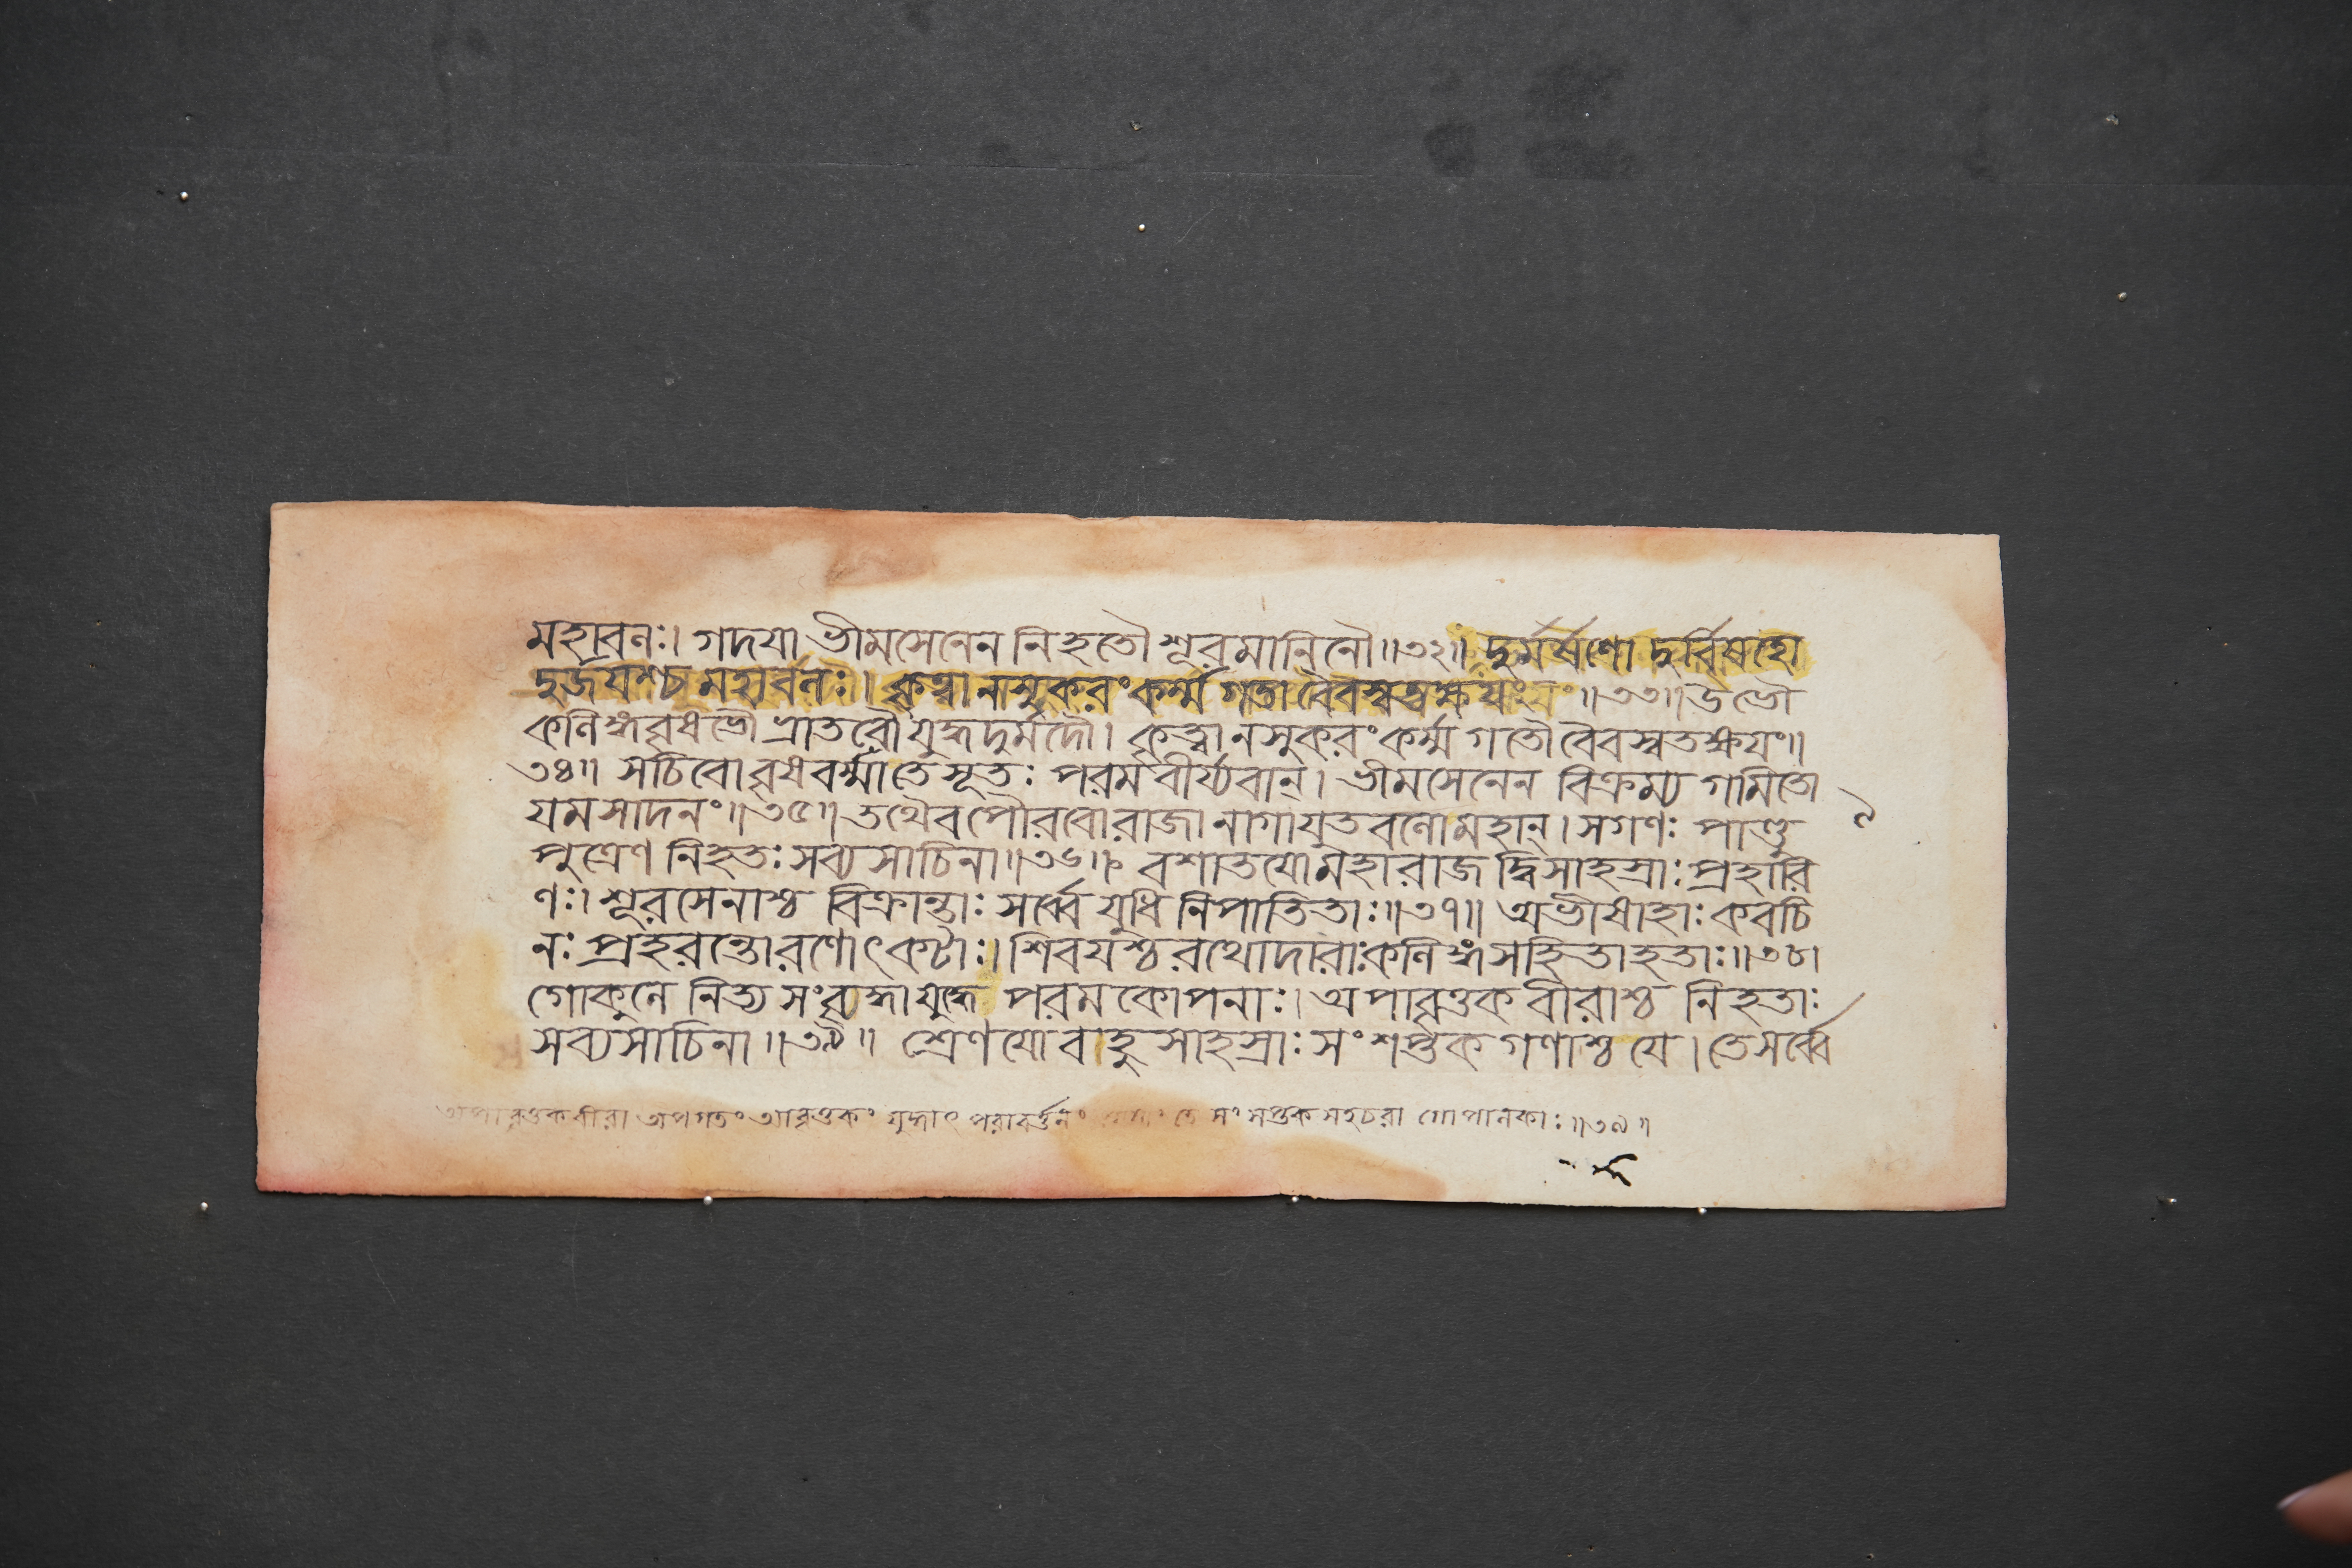 মহাবলঃ। গদযা ভীমসেনেন নিহতৌ শূরমানিনৌ॥৩২॥ দুর্মর্ষণো দুর্বিষহো
দুর্জযশ্চ মহাবলঃ। কৃত্বা নাসুকরং কর্ম্ম গতা বৈবস্বতক্ষযং॥৩৩॥ উভৌ
কলিঙ্গবৃষভৌ ভ্রাতরৌ যুদ্ধদুর্মদৌ। কৃত্বা নসুকরং কর্ম্ম গতৌ বৈবস্বতক্ষযং॥
৩৪॥ সচিবো বৃষবর্ম্মা তে সূতঃ পরমবীর্য্যবান্। ভীমসেনেন বিক্রম্য গমিতো
যমসাদনং॥৩৫॥ তথৈব পৌরবো রাজা নাগাযুতবলো মহান্। সগণঃ পাণ্ডু
পুত্রেণ নিহতঃ সব্যসাচিনা॥৩৬॥ বশাতযো মহারাজ দ্বিসাহস্রাঃ প্রহারি
ণঃ। শূরসেনাশ্চ বিক্রান্তাঃ সর্ব্বে যুধি নিপাতিতাঃ॥৩৭॥ অভীষাহাঃ কবচি
নঃ প্রহরন্তো রণোৎকটাঃ। শিবযশ্চ রথোদারাঃ কলিঙ্গসহিতা হতাঃ॥৩৮।
গোকুলে নিত্য সংবৃদ্ধা যুদ্ধে পরমকোপনাঃ। অপাবৃত্তক বীরাশ্চ নিহতাঃ
সব্যসাচিনা॥৩৯॥ শ্রেণযো বাহুসাহস্রাঃ সংশপ্তক গণাশ্চ যে। তে সর্ব্বে
অপাবৃত্তকবীরা অপগতং আবৃত্তকং যুদ্ধাৎ পরাবর্ত্তনং তে সংসপ্তক সহচরা গোপালকাঃ॥৩৯॥